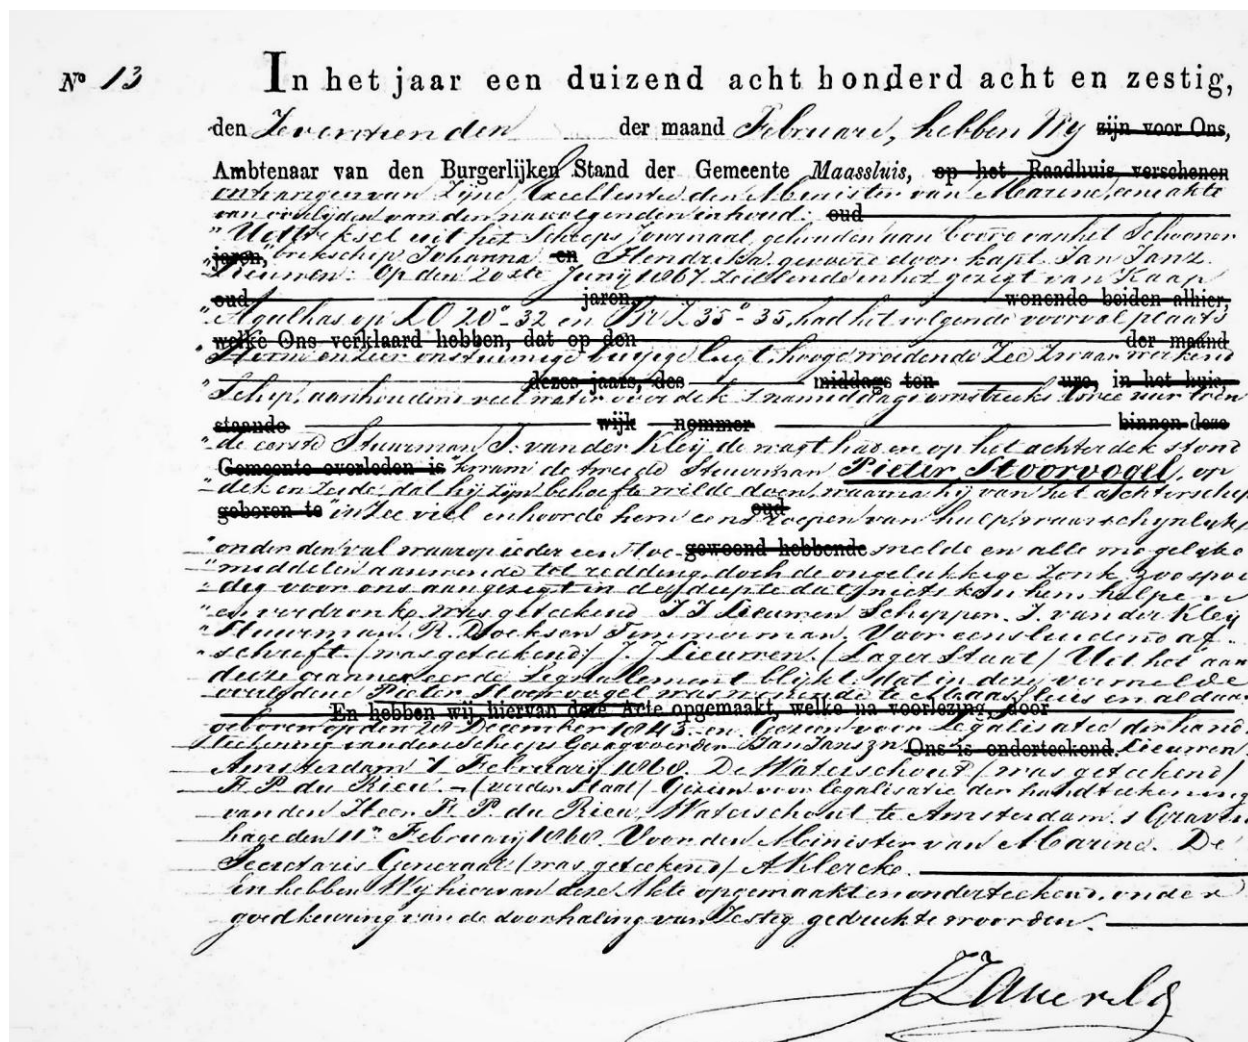 No 13
In het jaar een duizend acht honderd acht en zestig,
den Zeventienden der maand Februari, hebben Wy zijn voor Ons,
Ambtenaar van den Burgerlijken Stand der Gemeente Maassluis, op het Raadhuis verschenen
ontvangen van Zijne Excellentie den Minister van Marine, eene akte
van overlijden van den navolgenden inhoud: oud
" Uittreksel uit het Scheeps Journaal, gehouden aan boord van het Schoener
jaren, "brikschip Johanna en Hendrika gevoerd door kapt. Jan Janz.
"Lieuwen: Op den 20ste Junij 1867 zeilende in het gezigt van Kaap
oud jaren, wonende beiden alhier,
" Agulhas op LO 20°-32 en BrZ 35°-35, had het volgende voorval plaats
welke Ons verklaard hebben, dat op den der maand
" Storm en zeer onstuimige buijige lugt, hooge Zee Zwaar werkend
dezes jaars, des middags ten ure, in het huis,
" Schip, aanhoudend veel water over dek 's namiddags omstreeks twee uur toen
staande wijk nommer binnen deze
"de eerste Stuurman J. van der Kleij de wagt had en op het achterdek stond
Gemeente overleden is kwam de tweede Stuurman Pieter Stoorvogel, op
"dek en zeide dat hij zijn behoefte wilde doen, waarna hij van het achterschip
geboren te "in Zee viel en hoorde hem eens roepen van hulp, waarschynlyk oud
"onder den val waarop ieder een toe- gewoond hebbende snelde en alle mogelijke
"middelen aanwende tot redding, doch de ongelukkige Zonk zoo spoe
"dig voor ons aangezigt in de diepte dat niets kon hem helpen
"en verdronk, was geteekend J J Lieuwen Schipper. J. van der Kleij
"Stuurman. R. Timmerman. Voor eensluidend af-
"schrift (was geteekend) J. J. Lieuwen. (Lager Staat) Uit het aan
deze geannexeerde Signallement blijkt, dat in deze vermelde
overledene Pieter Stoorvogel was wonende te Maassluis en aldaar
En hebben wij hiervan deze Acte opgemaakt, welke na voorlezing, door
geboren op den 28 December 1843. en Gezien voor Legalisatie der hand
teekening van den Scheeps Gezagvoerder Jan Janszn Ons is onderteekend. Lieuwen
Amsterdam 7 Februarij 1868. De Waterschout (was geteekend)
F. P. du Rieu. - (verder Staat) Gezien voor legalisatie der handteekening
van den Heer F. P. du Rieu, Waterschout te Amsterdam 's Graven
hage den 11n Februarij 1868. Voor den Minister van Marine. De
Secretaris Generaal (was geteekend) A Klercke.
en hebben Wy hiervan deze Akte opgemaakt en onderteekend, onder
goedkeuring van de doorhaling van Zestig gedrukte woorden.